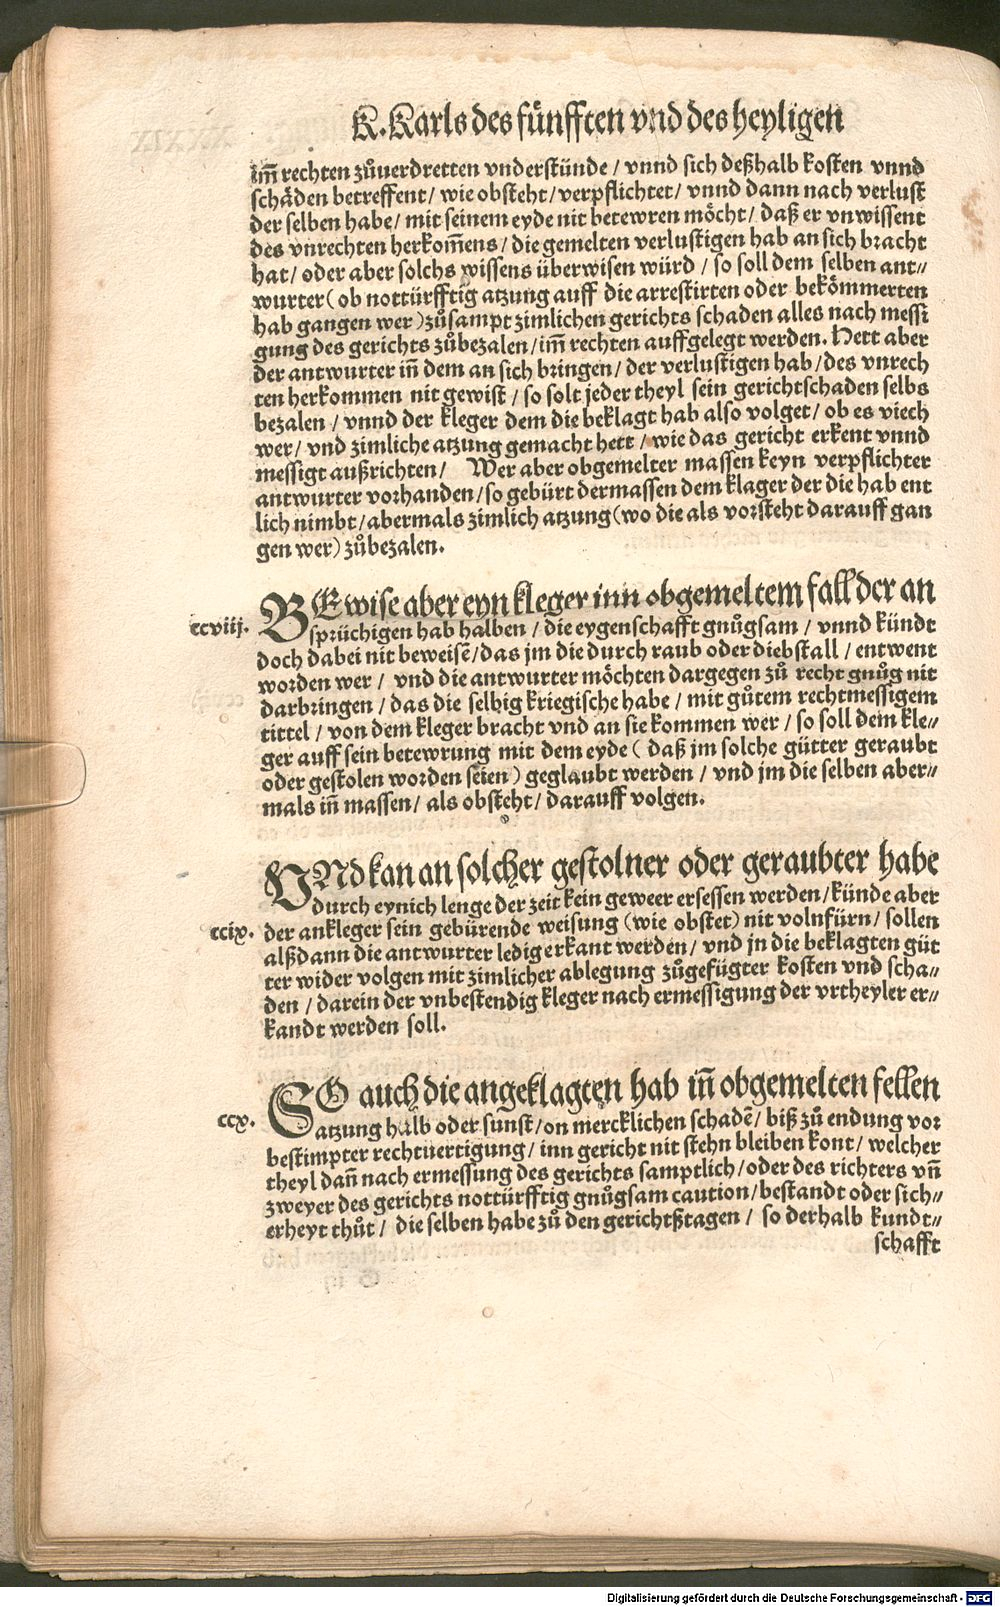 K. Karls des fünfften vnd des heyligen
im̄ rechten zůuerdretten vnderstünde / vnnd sich deßhalb kosten vnnd
schäden betreffent / wie obsteht / verpflichtet / vnnd dann nach verlust
der selben habe / mit seinem eyde nit betewren möcht / daß er vnwissent
des vnrechten herkom̄ens / die gemelten verlustigen hab an sich bracht
hat / oder aber solchs wissens überwisen würd / so soll dem selben ant⸗
wurter ( ob nottürfftig atzung auff die arrestirten oder bekömmerten
hab gangen wer ) zůsampt zimlichen gerichts schaden alles nach messi
gung des gerichts zůbezalen / im̄ rechten auffgelegt werden. Hett aber
der antwurter in̄ dem an sich bringen / der verlustigen hab / des vnrech
ten herkommen nit gewist / so solt jeder theyl sein gerichtschaden selbs
bezalen / vnnd der kleger dem die beklagt hab also volget / ob es viech
wer / vnd zimliche atzung gemacht hett / wie das gericht erkent vnnd
messigt außrichten / Wer aber obgemelter massen keyn verpflichter
antwurter vorhanden / so gebürt dermassen dem klager der die hab ent
lich nimbt / abermals zimlich atzung (wo die als vorsteht darauff gan
gen wer) zůbezalen.
BEwise aber eyn kleger inn obgemeltem fall der an
ccviij. sprüchigen hab halben / die eygenschafft gnůgsam / vnnd kündt
doch dabei nit beweisē / das jm die durch raub oder diebstall / entwent
worden wer / vnd die antwurter möchten dargegen zů recht gnůg nit
darbringen / das die selbig kriegische habe / mit gůtem rechtmessigem
tittel / von dem kleger bracht vnd an sie kommen wer / so soll dem kle⸗
ger auff sein betewrung mit dem eyde ( daß jm solche gütter geraubt
oder gestolen worden seien ) geglaubt werden / vnd jm die selben aber⸗
mals in̄ massen / als obsteht / darauff volgen.
VNd kan an solcher gestolner oder geraubter habe
durch eynich lenge der zeit kein geweer ersessen werden / künde aber
ccix. der ankleger sein gebürende weisung (wie obstet) nit volnfürn / sollen
alßdann die antwurter ledig erkant werden / vnd jn die beklagten güt
ter wider volgen mit zimlicher ablegung zůgefügter kosten vnd scha⸗
den / darein der vnbestendig kleger nach ermessigung der vrtheyler er⸗
kandt werden soll.
SO auch die angeklagten hab in̄ obgemelten fellen
ccx. atzung halb oder sunst / on mercklichen schadē / biß zů endung vor
bestimpter rechtuertigung / inn gericht nit stehn bleiben kont / welcher
theyl dan̄ nach ermessung des gerichts samptlich / oder des richters vn̄
zweyer des gerichts nottürfftig gnůgsam caution / bestandt oder sich⸗
erheyt thůt / die selben habe zů den gerichtßtagen / so derhalb kundt⸗
schafft
Digitalisierung gefördert durch die Deutsche Forschungsgemeinschaft - DFG